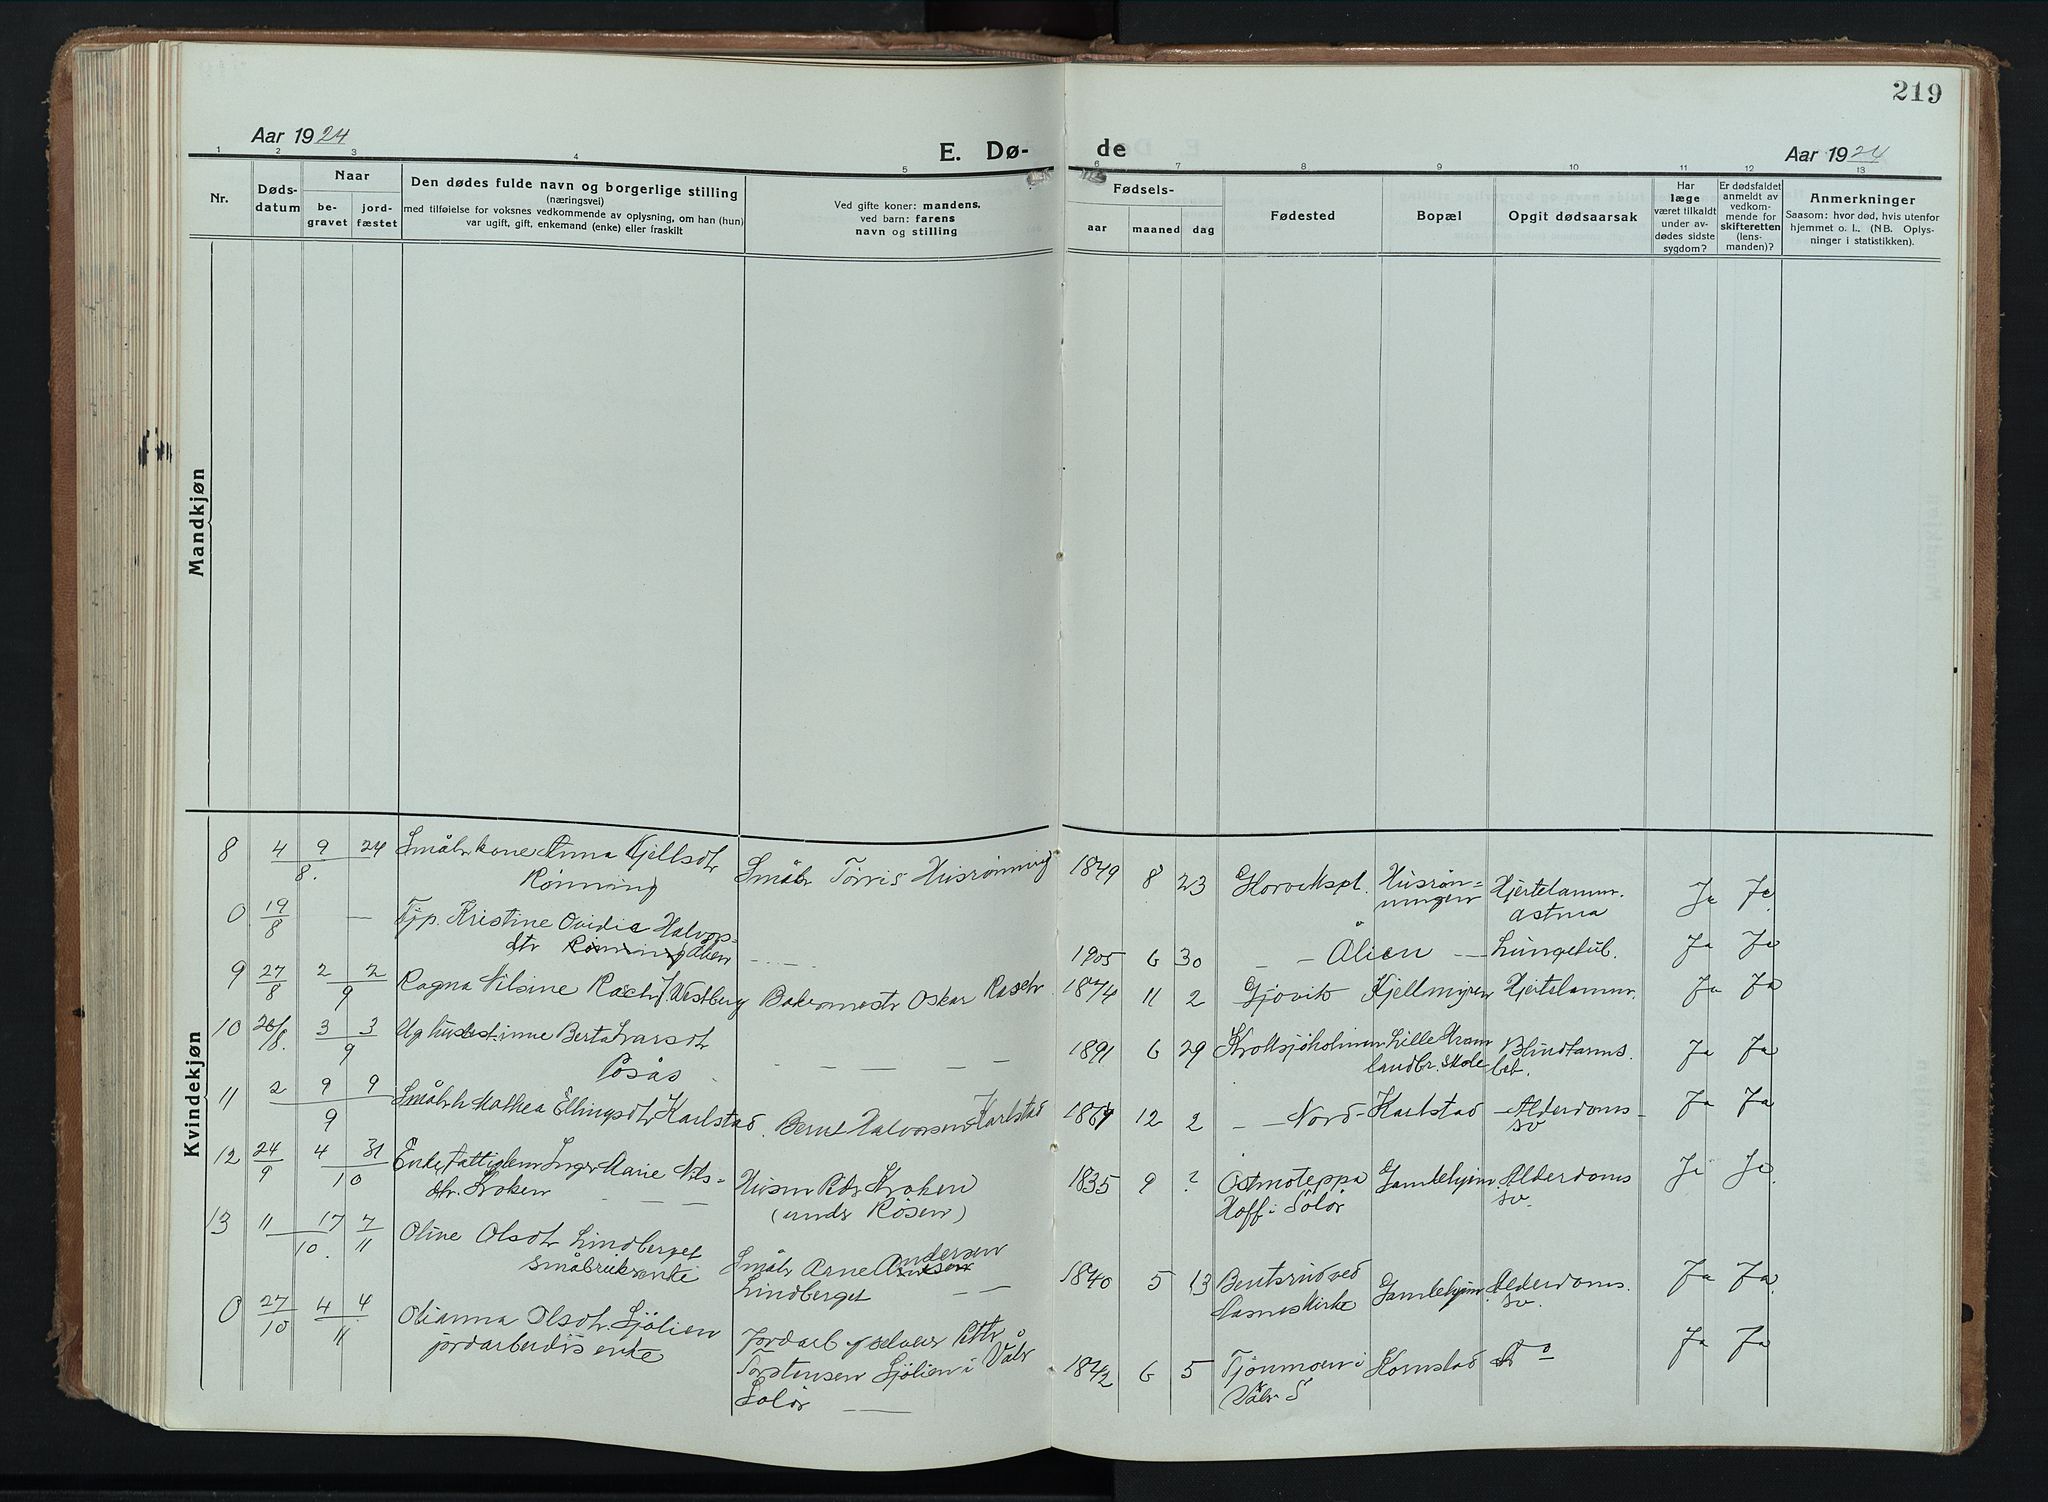 219
Aar 1924
E. Dø-
de
Aar 1924
1 2 3 4 5 6 7 8 9 10 11 12 13
Nr.
Døds-
datum
Naar
be-
gravet
jord-
fæstet
Den dødes fulde navn og borgerlige stilling
(næringsvei)
med tilføielse for voksnes vedkommende av oplysning, om han (hun)
var ugift, gift, enkemand (enke) eller fraskilt
Ved gifte koner: mandens,
ved barn: farens
navn og stilling
Fødsels-
aar maaned dag
Fødested
Bopæl
Opgit dødsaarsak
Har
læge
været tilkaldt
under av-
dødes sidste
sygdom?
Er dødsfaldet
anmeldt av
vedkom-
mende for
skifteretten
(lens-
manden)?
Anmerkninger
Saasom: hvor død, hvis utenfor
hjemmet o. l. (NB. Oplys-
ninger i statistikken).
Mandkjøn
Kvindekjøn
8 4 9 24 Småbr kone Anna Kjellsdtr
8. Rønning
Småbr Torris Husrønning
1849 8 23 Horvikspl. Husrøn=
ningen
Hjertelammr.
astma
Ja Ja
0 19/8 — Tjp. Kristine Ovidie Halvors-
dtr Rønning Ålien
1905 6 30 — Ålien — Lungetub. Ja Ja
9 27/8 2 2
9
Ragna Nilsine Rasch f. Westberg Bakermestr Oskar Rasch
1874 11 2 Gjøvik Kjellmyren Hjertelammr. Ja Ja
10 26/8. 3 3
9
Ug Berta Larsdtr
Pøsås
1891 6 29 Lille
landbr. skole
Blindtarms
bet.
Ja Ja
11 2 9 9
9
Mathea Ellingsdtr Karlstad
Bernt Halvorsen Karlstad
12 2 — Nord Karlstad Alderdoms
sv
Ja Ja
12 24/9 4 31
10
Enke Inger Marie Nils=
dtr. Kroken
Kroken
(under Rosen)
1835 9 ? Ostmoteppa
Hoff i Solør
Gamlehjem Alderdoms
sv.
Ja Ja
13 11 17 7
10. 11
Oline Olsdtr Lindberget
småbrukrenke
Småbr Arne Andersen
Lindberget — —
1840 5 13 Bentsrud ved
Hasneskirke
Gamlehjem Alderdoms
sv.
Ja Ja
0 27/10 4 4
11
Olianna Olsdtr. Sjølien
jordarbeidis enke
Jordarb og selveier Pettr
Torstensen Sjølien i Vålr
Solør —
1842 6 5 Tjønmoen i
Vålr S
Kornstad
Ja Ja